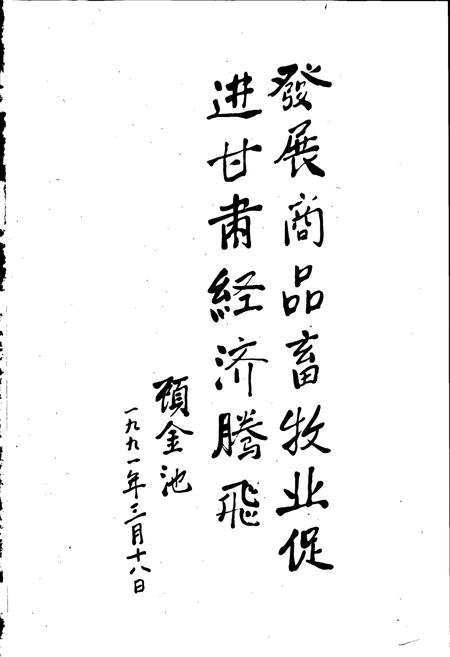 發展商品畜牧业促
进甘肃経济腾飛
顾金池
一九九一年三月十八日